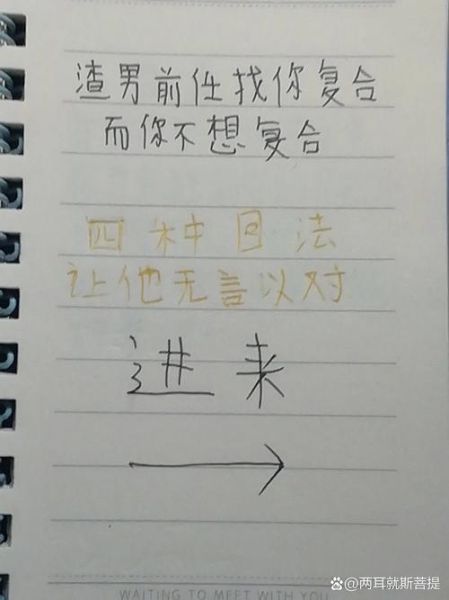 渣男前任找你复合
而你不想复合
四种回法
让他无言以对
进来
WAITING TO MEET WITH YOU
@两耳就斯菩提